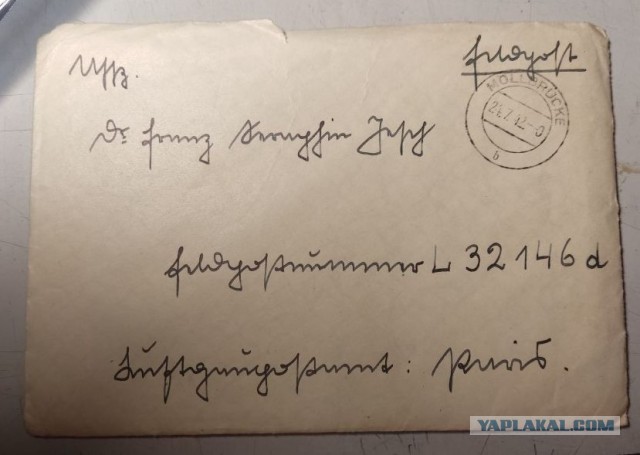 Uffz.
Feldpost
MÖLLBRÜCKE
21.7.42.-0
b
Dr. Franz Seraphin Jesch
Feldpostnummer L 32146 d
Luftgaupostamt: Paris.
YAPLAKAL.COM